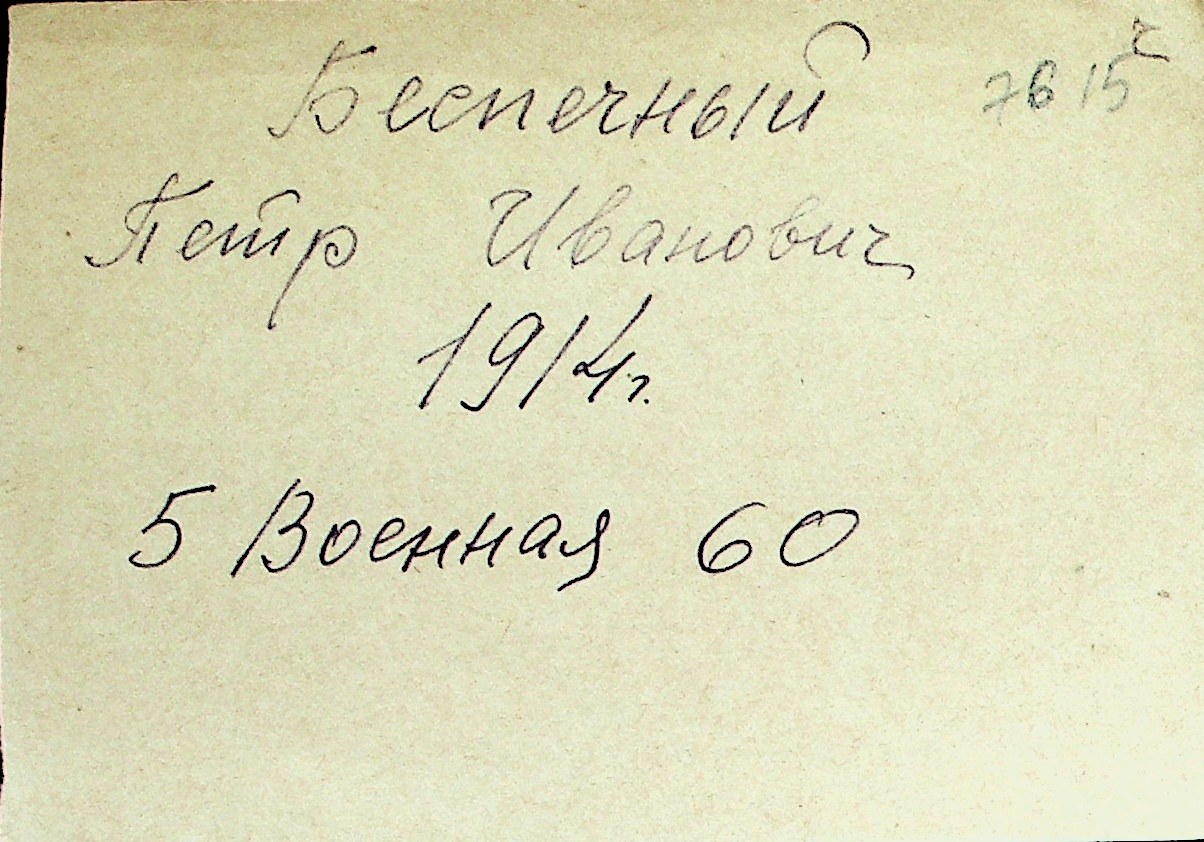 Беспечный 7615 ч
Петр Иванович
1914г.
5 Военная 60